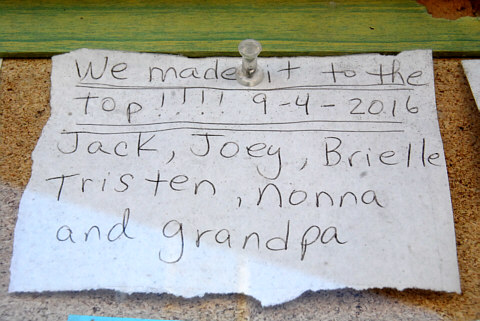 We made it to the
top!!!! 9-4-2016
Jack, Joey, Brielle
Tristen, Nonna
and grandpa